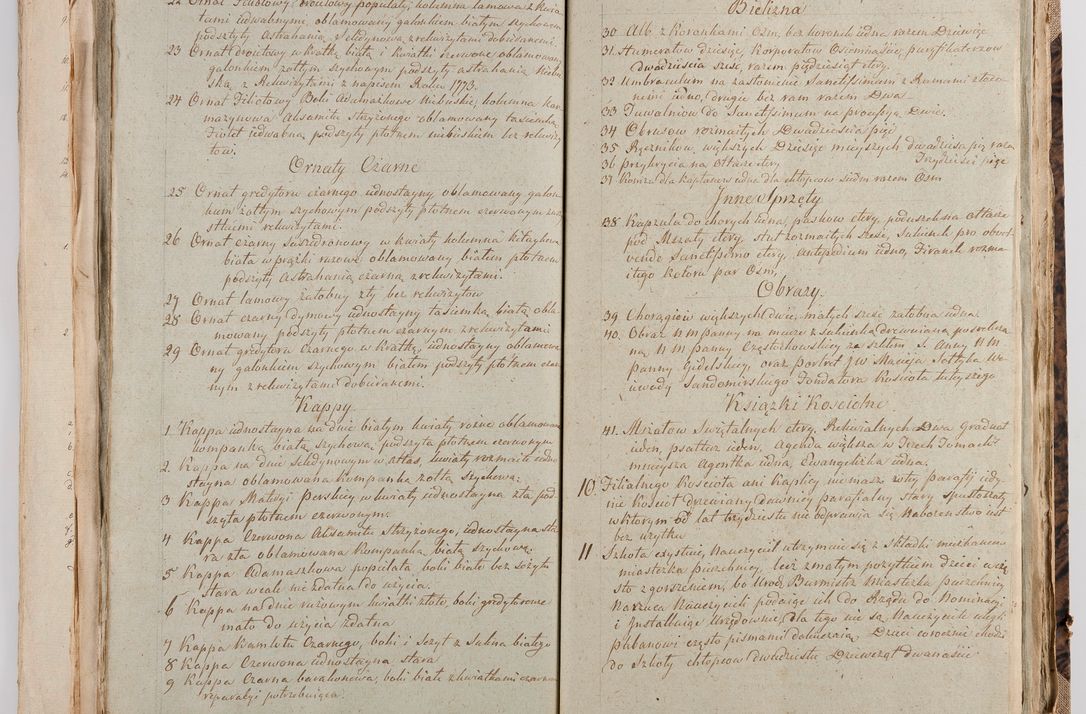 22 Ornat Felbowy drociłowy popielaty, kolumna lamowa z kwia
tami jedwabnymi, oblamowany galonkiem białym szychowym
podszyty Astrahanią Seledynową z rekwizytami dobieranemi.
23 Ornat drocitowy w kratkę białą i kwiatki czerwone oblamowany
galonkiem żołtym szychowym podszyty astrahanią niebie
ską, z Rekwizytami z napisem Roku 1773.
24 Ornat Felbotowy Boki Adamaszkowe niebieskie, kolumna kar
mazynowa Aksamitu Strzyżonego oblamowany tasiemką
Fiolet jedwabną podszyty płotnem niebieskiem bez rekwizy
tow.
Ornaty Czarne
25 Ornat gredytoru czarnego iednostayny oblamowany galon
kiem żołtym szychowym podszyty płotnem czerwonym ze wszy
stkiemi rekwizytami.
26 Ornat czarny w kwiaty kolumna kitaykowa
biała w prążki razowe oblamowany białem płotnem
podszyty Astrahanią czarną z rekwizytami.
27 Ornat lamowy żałobny zły bez rekwizytow
28 Ornat czarny dymowy iednostayny tasiemką białą obla
mowany podszyty płotnem czarnym z rekwizytami
29 Ornat gredytoru Czarnego w kratkę, iednostayny oblamowa
ny galonkiem szychowym białem podszyty płotnem czar
nym z rekwizytami dobieranemi.
Kappy
1. Kappa iednostayna na dnie białym kwiaty rożne oblamowana
kompanką białą szychową, podszyta płotnem czerwonym
2 Kappa na dnie Seledynowym w atłas, kwiaty rozmaite iedno
stayna oblamowana kompanką żołtą Szychową;
3 Kappa Materyi Perskiey w kwiaty iednostayna zła pod
szyta płotnem czerwonym.
4 Kappa Czerwona Aksamitu Strzyżonego, iednostayna sta
ra zła oblamowana kompanką białą szychową.
5 Kappa Adamaszkowa popielata, boki białe bez szczytu
stara wcale nie zdatna do użycia.
6 Kappa na dnie rużowym kwiatki złote, boki gredytorowe
mało do użycia zdatna
7 Kappa Kamlotu Czarnego, boki i Szczyt z Sukna białego
8 Kappa Czerwona iednostayna stara
9 Kappa Czarna bawełnowa, boki białe z kwiatkami czarnemi
reparacyi potrzebuiąca.
Bielizna
30. Alb z Koronkami Osm, bez koronek iedna razem Dziewięć
31. Humerałow Dziesięć, Korporałow Ośiemnaście, puryfikaterzow
dwadzieścia sześć, razem pięćdziesiąt cztery.
32 Umbraculum na zasłonienie Sanctissimum z Ramami złoco
nemi iedno, drugie bez ram razem Dwa
33 Tuwalniow do Sanctissimum na processyą Dwie.
34 Obrusow rozmaitych Dwadzieścia pięć
35 Ręcznikow większych Dziesięć mnieyszych dwadzieścia pięć razem
36 przykrycia na Ołtarze cztery Trzydzieści pięć
37 Komża dla Kapłanow iedna dla chłopcow siedm razem Osm
Inne Sprzęty
38 Kapsula do chorych iedna, paskow cztery, poduszek na ołtarze
pod Mszały cztery, stuł rozmaitych sześć, Sukienek pro obvol
vendo Sanctissimo cztery, antepedium iedno, Firanek rozma
itego koloru par Osm,
Obrazy.
39. Chorągiewi większych dwie, małych sześć żałobna iedna
40. Obraz N M Panny na murze z sukienką drewnianą posrebrza
ną N M panny Częstochowskiey za szkłem S. Anny N M
panny Gidelskiey, oraz portret JW Macieja Sołtyka Wo
iewody Sandomirskiego Fondatora Kościoła tuteyszego
Książki Kościelne.
41. Mszałow Swiętalnych cztery, Rekwialnych Dwa Graduał
ieden, psałterz ieden, Agenda większa w Trzech Tomach
mnieysza Agentka iedna, Ewangeliczka iedna.
10. Filialnego Kościoła ani Kaplicy nie masz w tey parafij iedy
nie Kościoł drewniany dawniey parafialny stary spustoszały
w ktorym od lat trzydziestu nie odprawia się Nabożeństwo iest
bez użytku
11 Szkoła exystuie, Nauczyciel utrzymuie się z składki mieszkańcow
miasteczka pierzchnicy, lecz z małym pożytkiem dzieci a czę
sto z gorszeniem, bo Urząd Burmistrz Miasteczka pierzchnicy
Narzuca Nauczycieli podaiąc ich do Rządu do Nominacyi
i Installuiąc Urzędownie, dla tego nie są Nauczyciele ulegli
plebanowi często pismami dokuczaią. Dzieci corocznie chodzi
do Szkoły chłopcow dwadzieście Dziewcząt dwanaście